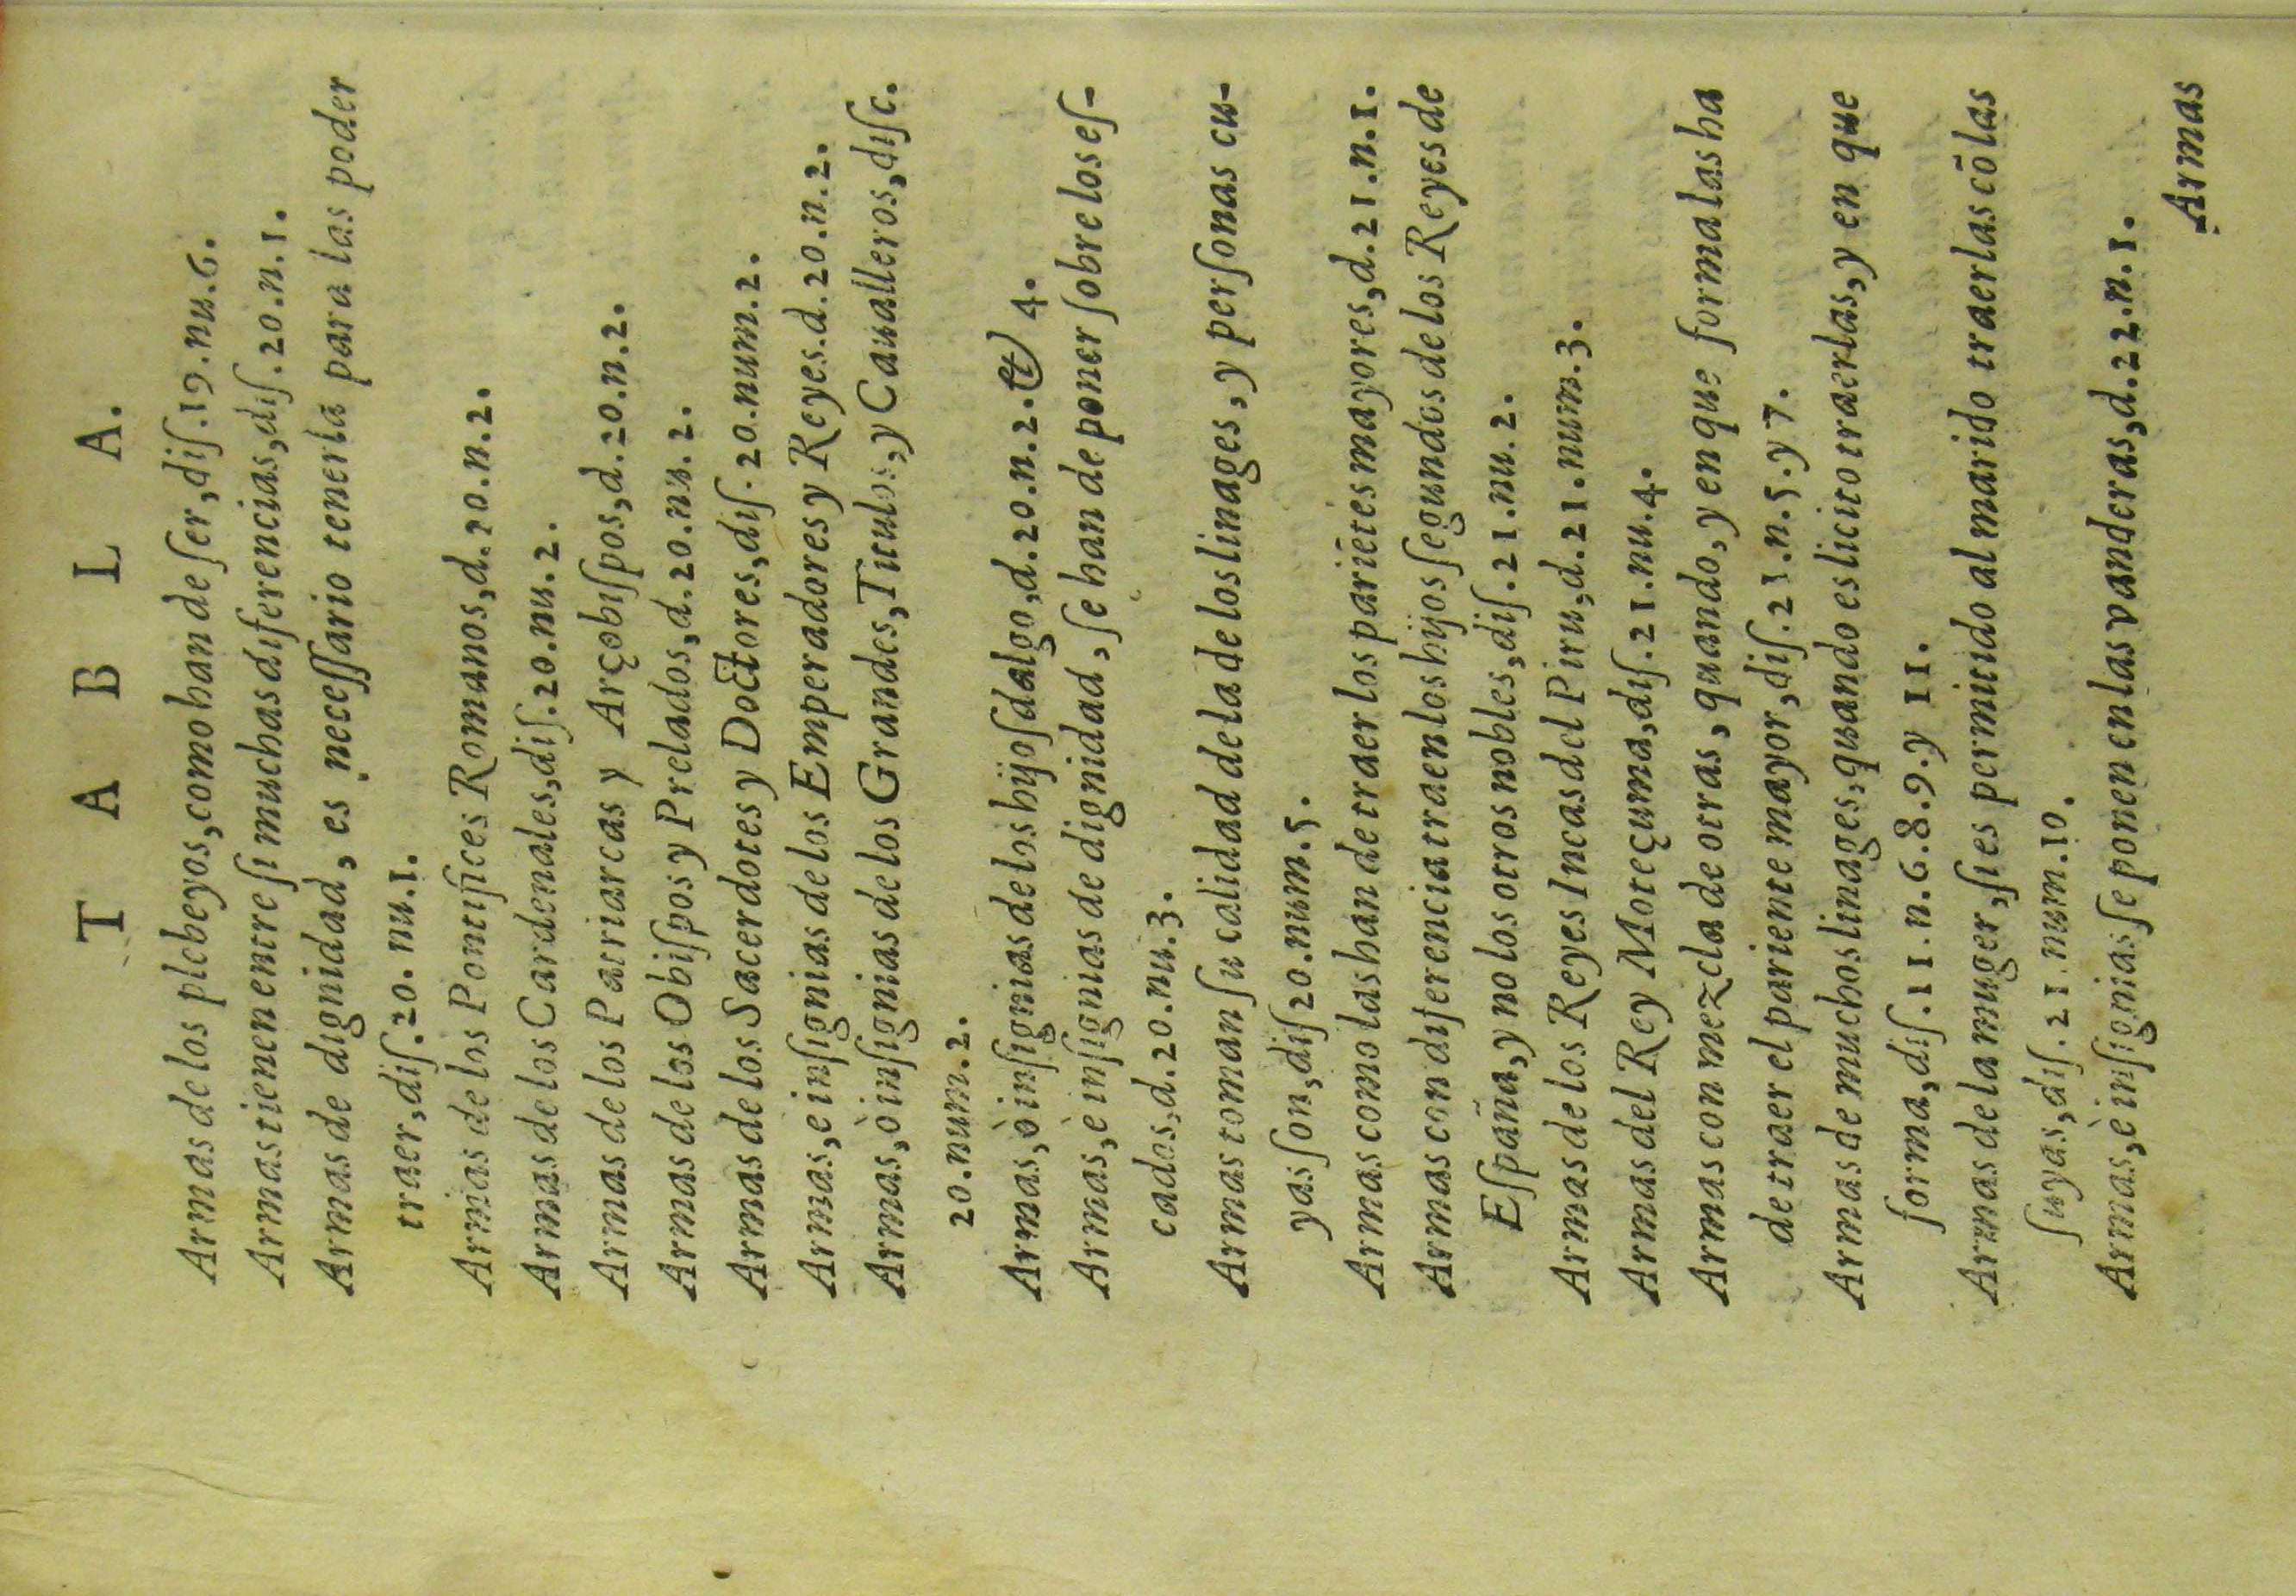 T A B L A.
Armas de los plebeyos, como han de ser, diſ. 19. nu. 6.
Armas tienen entre ſi muchas diferencias, diſ. 20. n. 1.
Armas de dignidad, es neceſſario tenerla para las poder
traer, diſ. 20. nu. 1.
Armas de los Pontifices Romanos, d. 20. n. 2.
Armas de los Cardenales, diſ. 20. nu. 2.
Armas de los Patriarcas y Arçobiſpos, d. 20. n. 2.
Armas de los Obiſpos y Prelados, d. 20. nu. 2.
Armas de los Sacerdotes y Doctores, diſ. 20. num. 2.
Armas, e inſignias de los Emperadores y Reyes. d. 20. n. 2.
Armas, ò inſignias de los Grandes, Titulos, y Caualleros, diſc.
20. num. 2.
Armas, ò inſignias de los hijoſdalgo, d. 20. n. 2. & 4.
Armas, è inſignias de dignidad, ſe han de poner ſobre los eſ-
cados, d. 20. nu. 3.
Armas toman ſu calidad de la de los linages, y perſonas cu-
yas ſon, diſ 20. num. 5.
Armas como las han de traer los pariẽtes mayores, d. 21. n. 1.
Armas con diferencia traen los hijos ſegundos de los Reyes de
Eſpaña, y no los otros nobles, diſ. 21. nu. 2.
Armas de los Reyes Incas del Piru, d. 21. num. 3.
Armas del Rey Moteçuma, diſ. 21. nu. 4.
Armas con mezcla de otras, quando, y en que forma las ha
de traer el pariente mayor, diſ. 21. n. 5. y 7.
Armas de muchos linages, quando es licito traerlas, y en que
forma, diſ. 11. n. 6. 8. 9. y 11.
Armas de la muger, ſi es permitido al marido traerlas cõ las
ſuyas, diſ. 21. num. 10.
Armas, è inſignias ſe ponen en las vanderas, d. 22. n. 1.
Armas